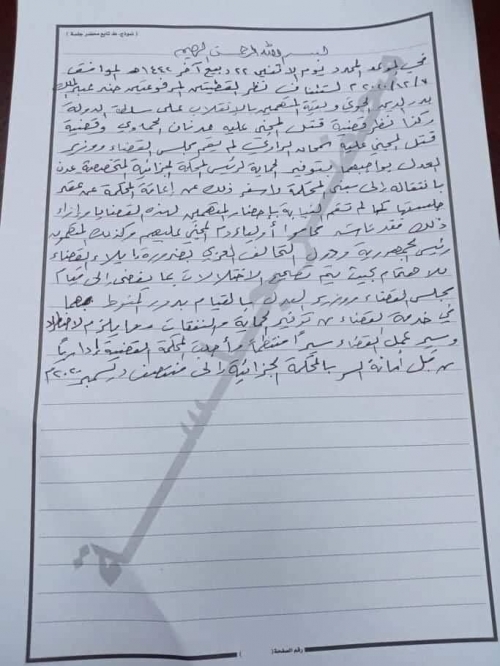 ( نموذج: مد تابع محضر جلسة )
بسم الله الرحمن الرحيم
في الموعد المحدد يوم الاثنين ٢٢ ربيع آخر ١٤٤٢هـ الموافق
٢٠٢٠/١٢/٧م لنظر القضيتين المرفوعتين ضد عبدالملك
بدرالدين الحوثي وبقية المتهمين بالانقلاب على سلطة الدولة
وكذا نظر قضية قتل المجني عليه عدنان الحمادي وقضية
قتل المجني عليه الراوي لم يقم مجلس القضاء ووزير
العدل بواجبهما بتوفير الحماية لرئيس المحكمة الجزائية المتخصصة عدن
بانتقاله إلى مبنى المحكمة وأسفر ذلك عن إعاقة المحكمة عن عقد
جلستها كما لم تقم النيابة بإحضار المتهمين لهذه القضايا وإزاء
ذلك فقد محاموا أولياء دم المجني عليهم وكذلك المتهمون
رئيس الجمهورية ودول التحالف العربي بضرورة إيلاء القضاء
الاهتمام بحيث يتم تصحيح الاختلالات بما يفضي إلى قيام
مجلس القضاء ووزير العدل بالقيام بدور المنوط بهما
في خدمة القضاء من توفير حماية ونفقات وما يلزم
وسير عمل القضاء سيراً منتظماً وأجلت المحكمة القضية إدارياً
من قبل أمانة السر بالمحكمة الجزائية إلى منتصف ديسمبر ٢٠٢٠م
محضر جلسة
رقم الصفحة ( )